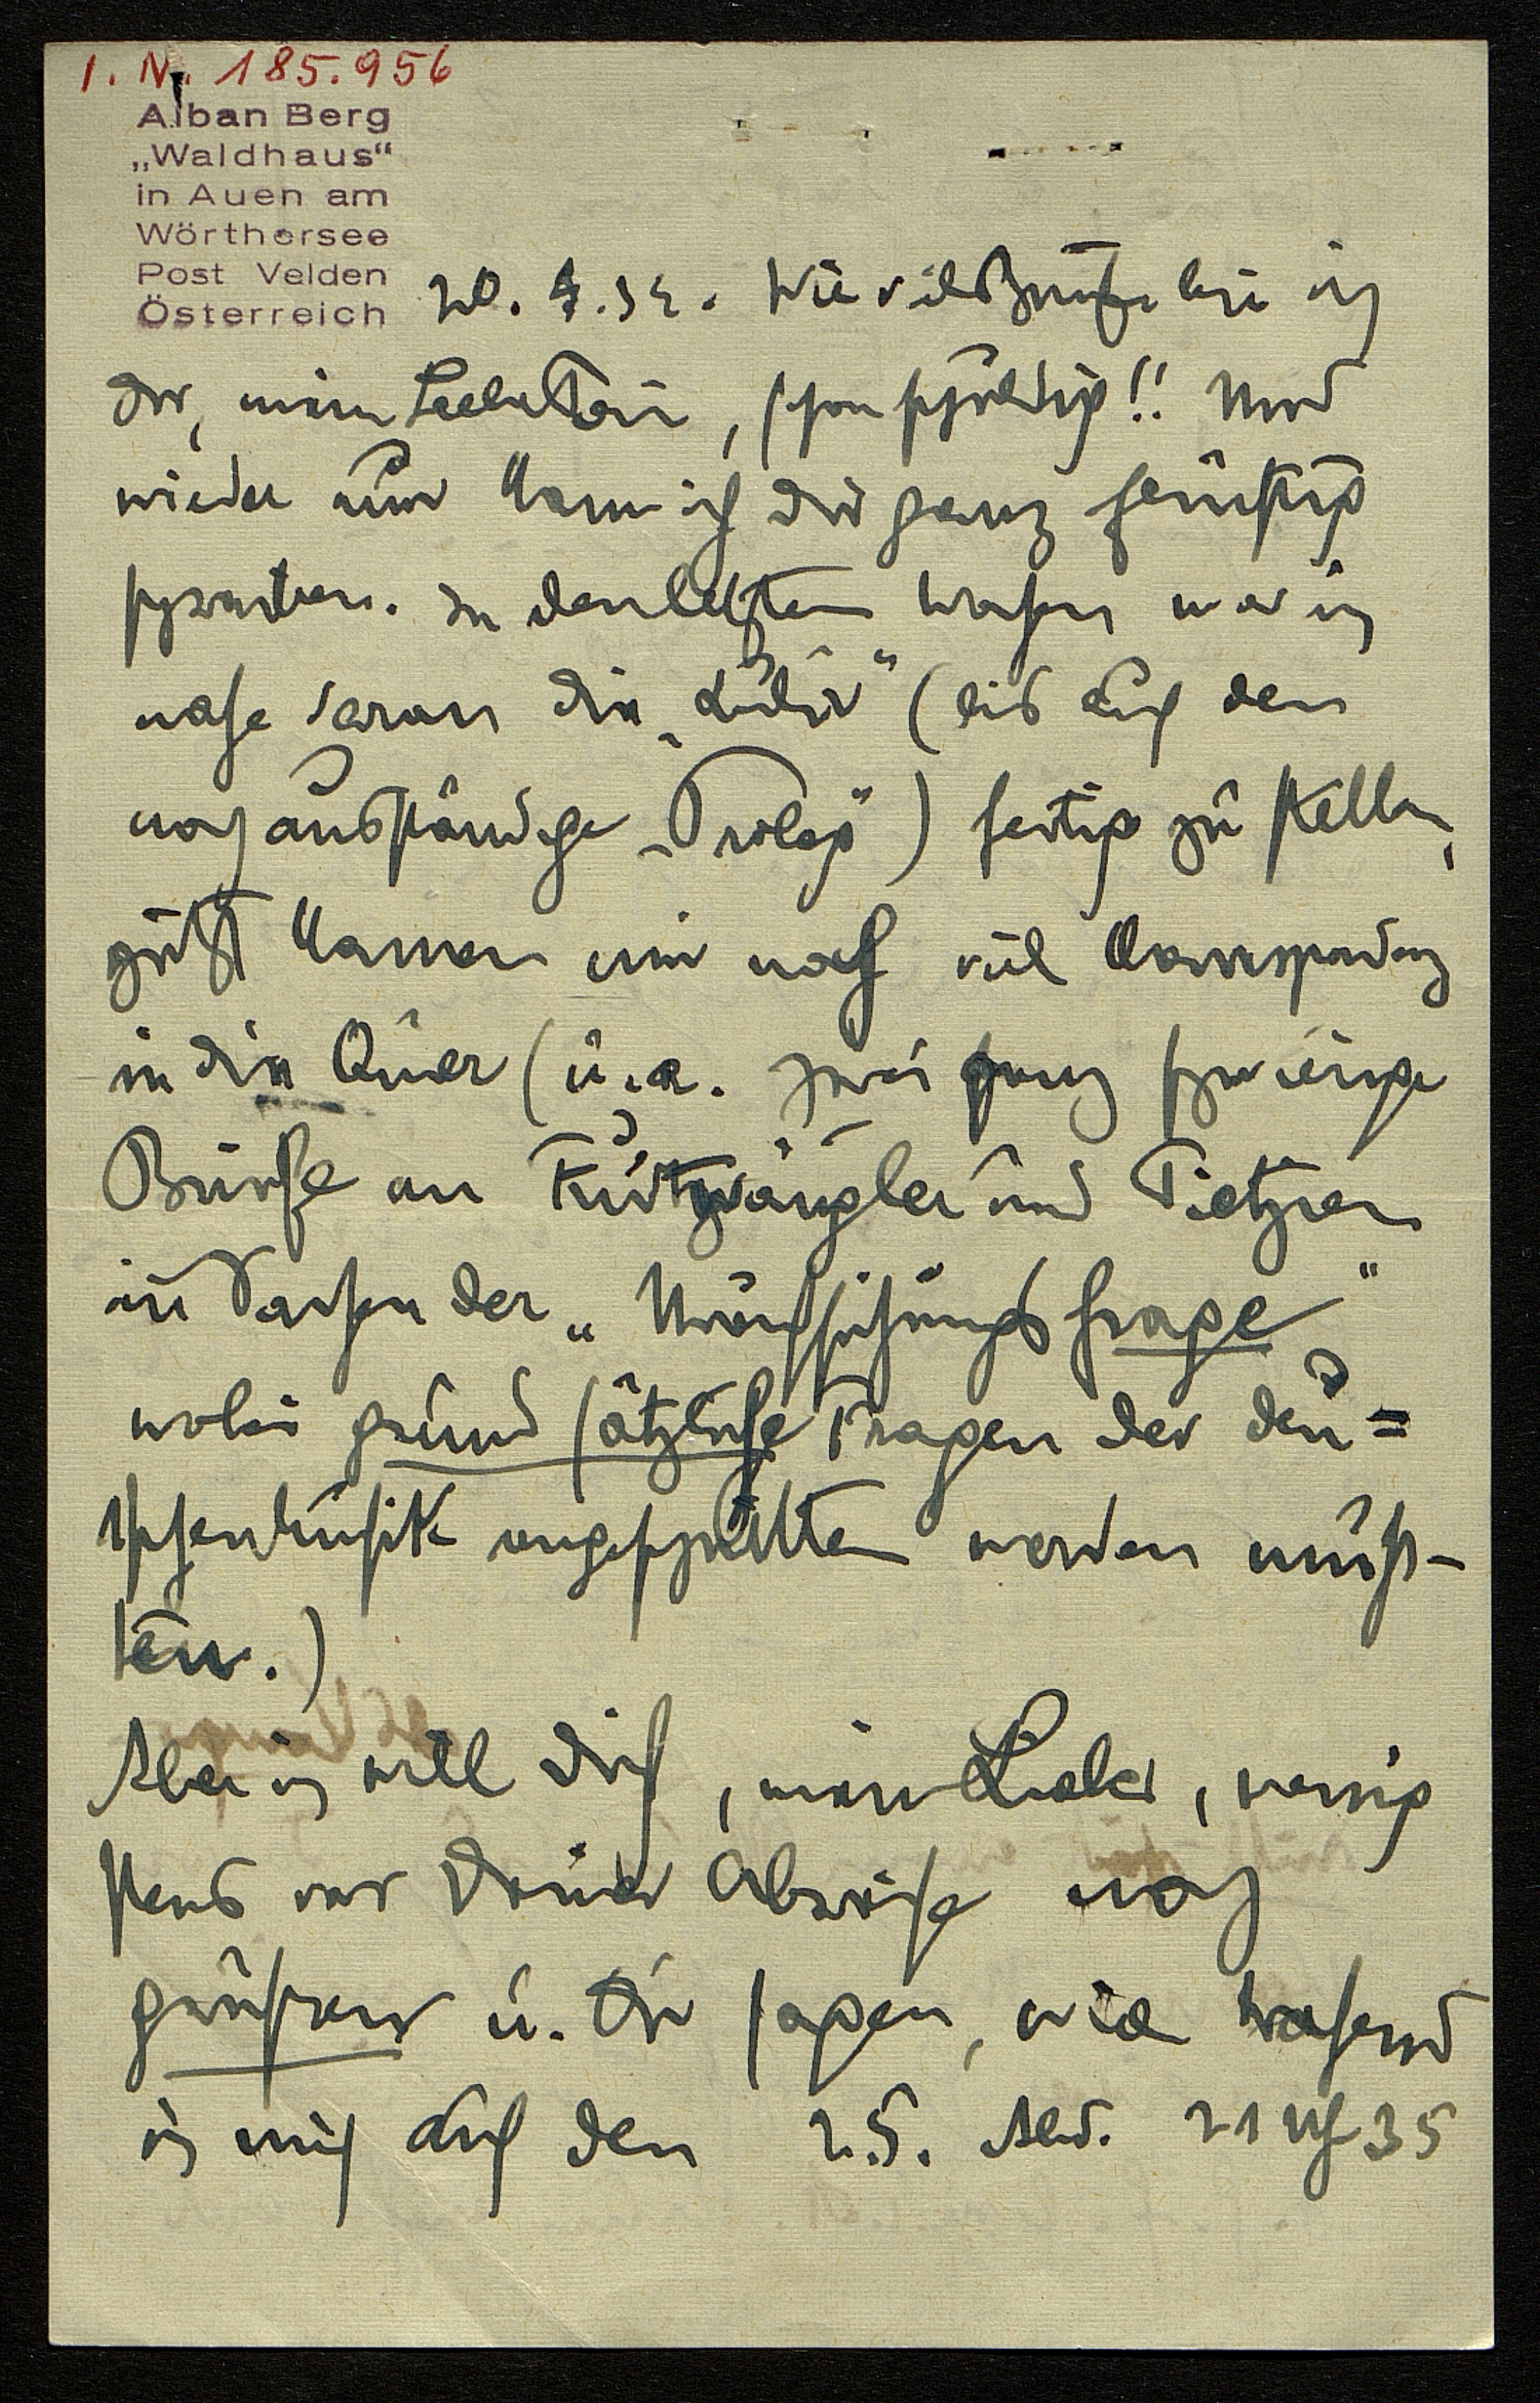 I. N. 185.956
Alban Berg
„Waldhaus“
in Auen am
Wörthersee
Post Velden
Österreich
20. 4. 34. Wie viel Briefe bin ich
Dir, mein Lieber, schon schuldig!! Und
wieder nur kann ich Dir ganz flüchtig
schreiben. In den letzten Wochen war ich
nahe daran die „Lulu“ (bis auf den
noch ausständigen „Prolog“) fertig zu stellen,
jetzt kamen mir noch viel Correspondenz
in die Quer (u. a. zwei ganz schwierige
Briefe an Furtwängler und Tietjen
in Sachen der „Uraufführungsfrage“
wobei grundsätzliche Fragen der deu=
tschen Musik angeschnitten werden muß-
ten.)
Aber ich will Dich, mein Lieber, wenig
stens vor Deiner Abreise noch
grüßen u. Dir sagen, wie
ich mich auf den 25. Abd. 21 Uh 35